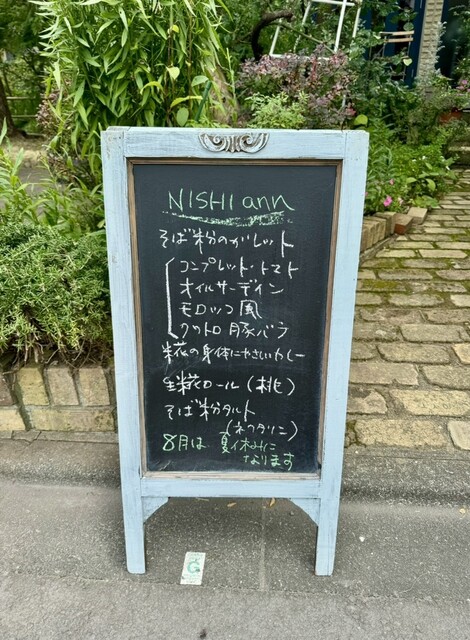 NISHI ann
そば粉のガレット
コンプレット・トマト
オイルサーディン
モロッコ風
クワトロ 豚バラ
糀の身体にやさしいカレー
生糀ロール（桃）
そば粉タルト
（ネクタリン）
8月は 夏休みに
なります